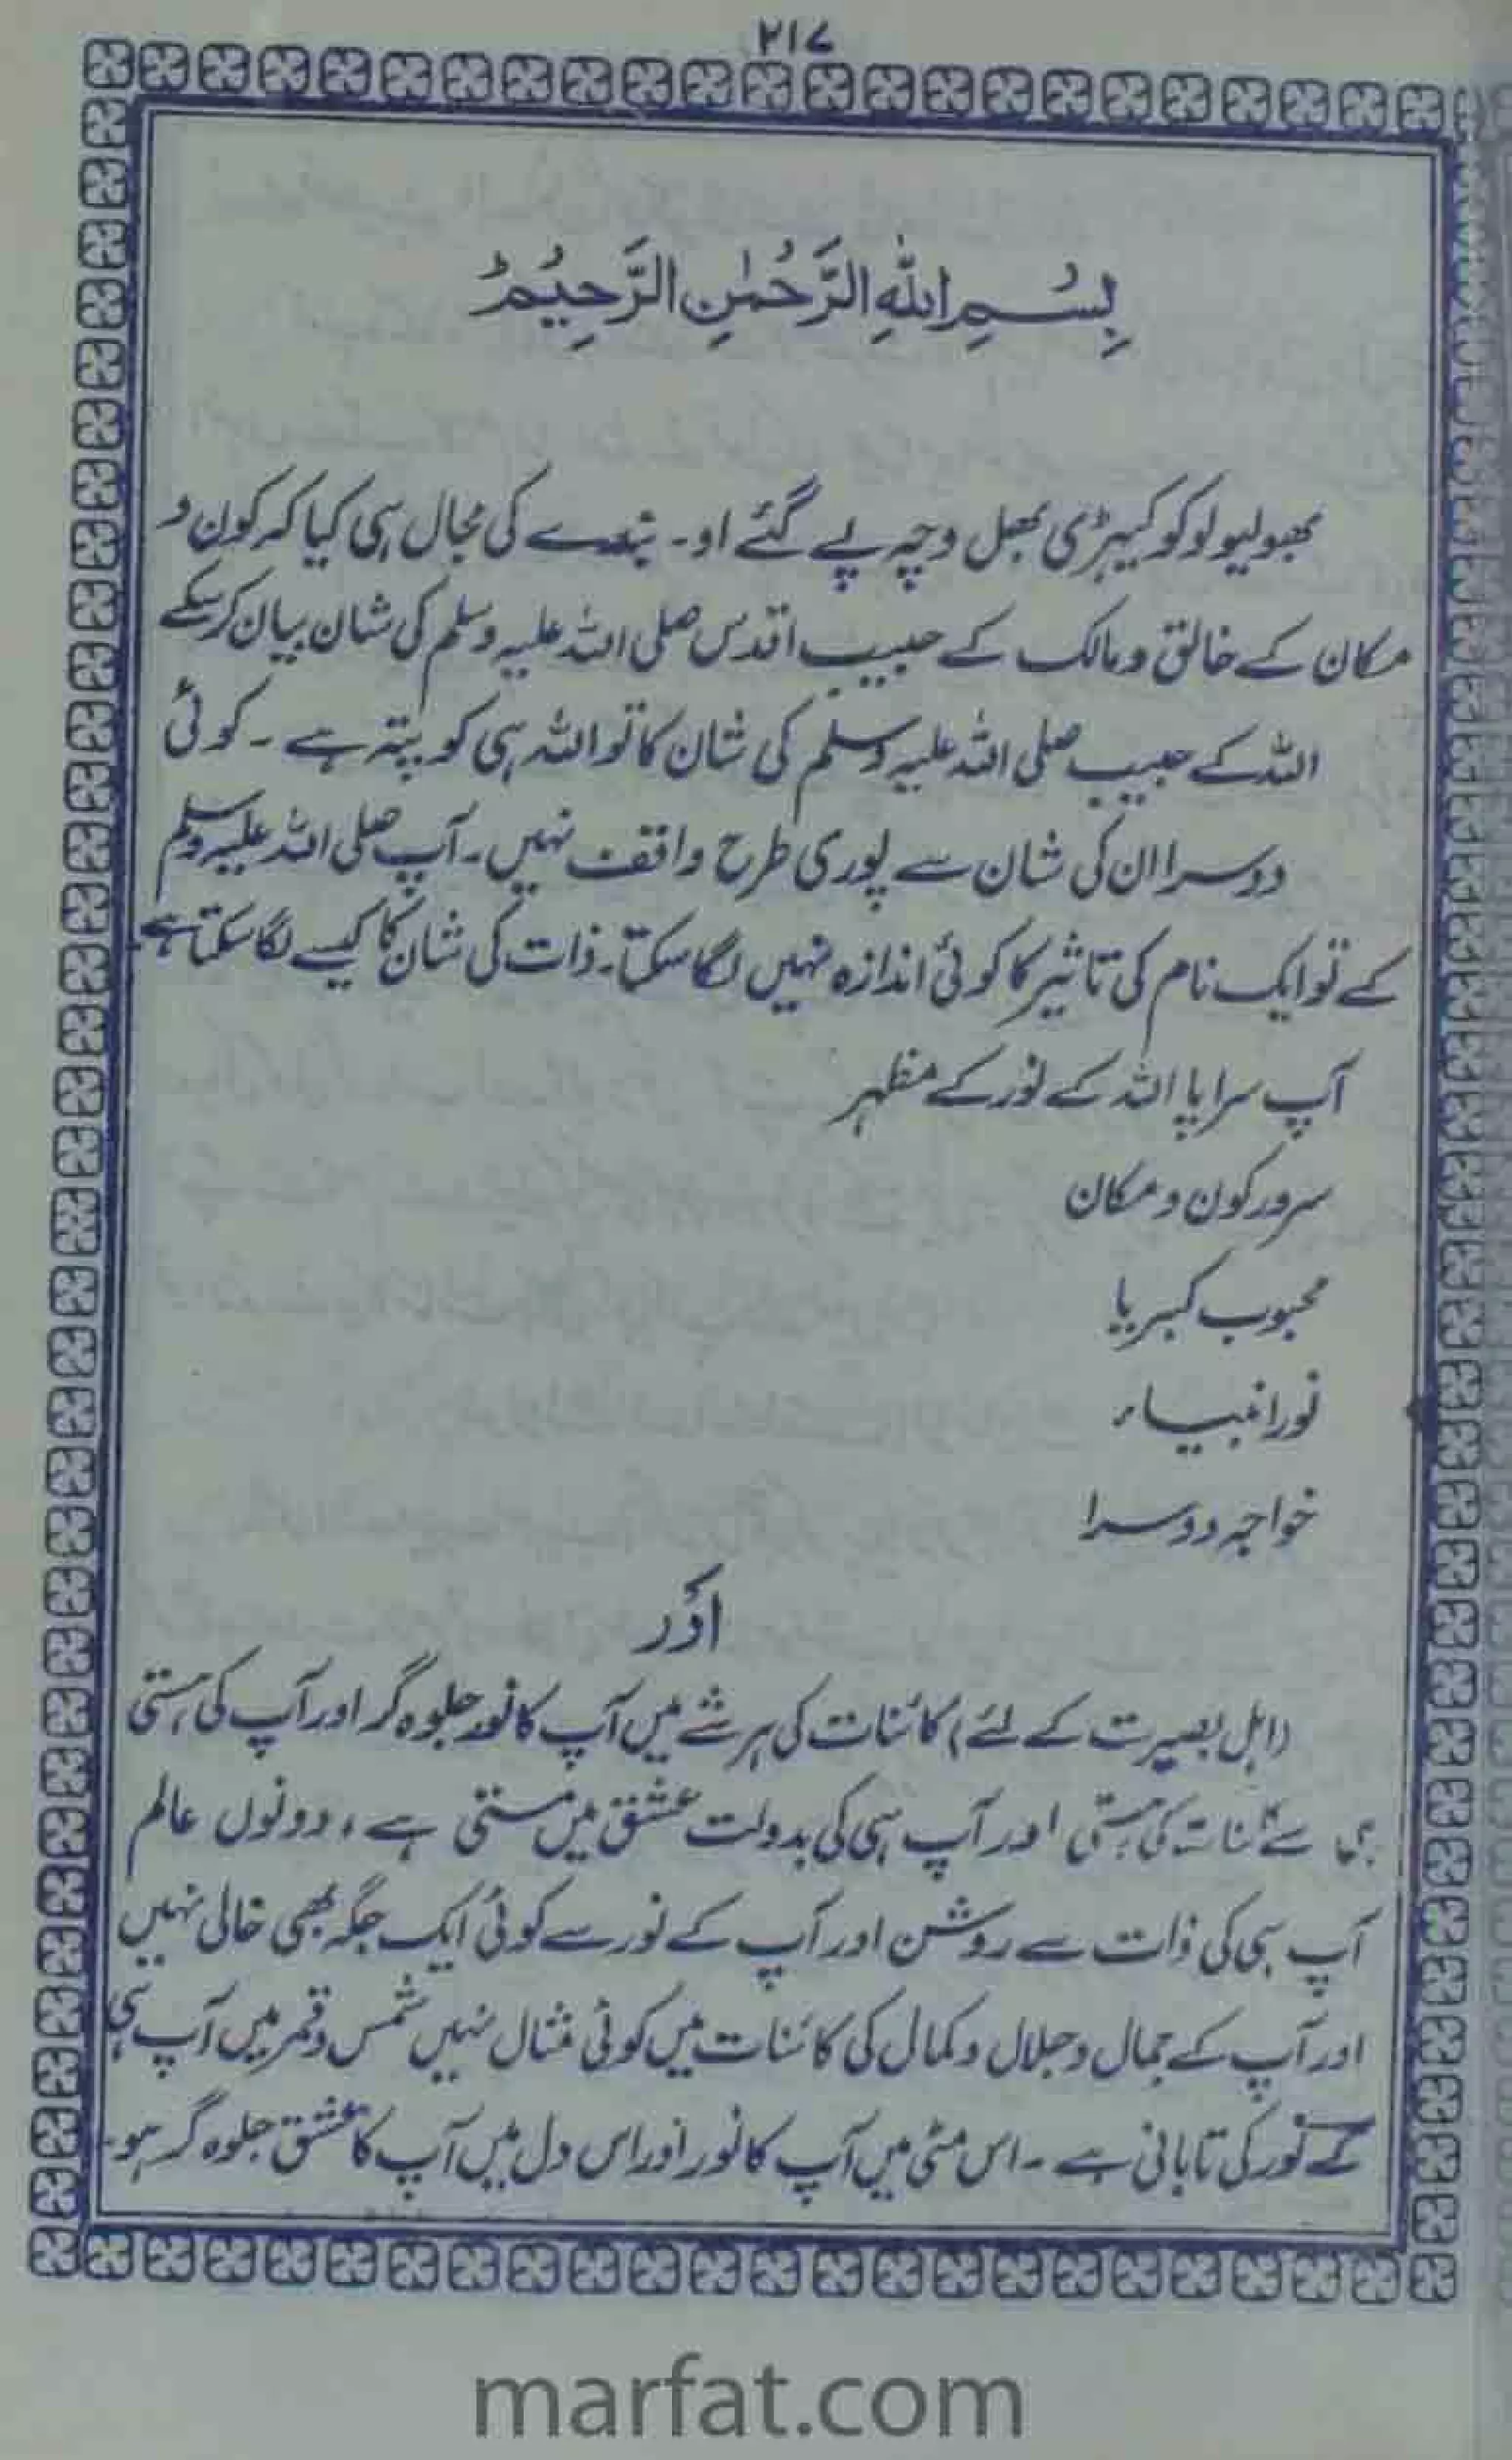 ۲۱۷
بِسْمِ اللهِ الرَّحْمٰنِ الرَّحِيْمِ
بھولیو لوکو کیہڑی بھل وچہ پے گئے او۔ بندے کی مجال ہی کیا کہ کون و
مکان کے خالق و مالک کے حبیب اقدس صلی اللہ علیہ وسلم کی شان بیان کر سکے
اللہ کے حبیب صلی اللہ علیہ وسلم کی شان کا تو اللہ ہی کو پتہ ہے ۔ کوئی
دوسرا ان کی شان سے پوری طرح واقف نہیں۔ آپ صلی اللہ علیہ وسلم
کے تو ایک نام کی تاثیر کا کوئی اندازہ نہیں لگا سکتا۔ ذات کی شان کا کیسے لگا سکتا ہے
آپ سراپا اللہ کے نور کے مظہر
سرور کون و مکان
محبوب کبریا
نور انبیاء
خواجہ دوسرا
اور
(اہل بصیرت کے لئے) کائنات کی ہر شے میں آپ کا نور جلوہ گر اور آپ کی ہستی
ہی سے کائنات کی ہستی اور آپ ہی کی بدولت عشق میں مستی ہے، دونوں عالم
آپ ہی کی ذات سے روشن اور آپ کے نور سے کوئی ایک جگہ بھی خالی نہیں
اور آپ کے جمال و جلال و کمال کی کائنات میں کوئی مثال نہیں شمس و قمر میں آپ ہی
کے نور کی تابانی ہے ۔ اس مٹی میں آپ کا نور اور اس دل میں آپ کا عشق جلوہ گر ہو۔
marfat.com